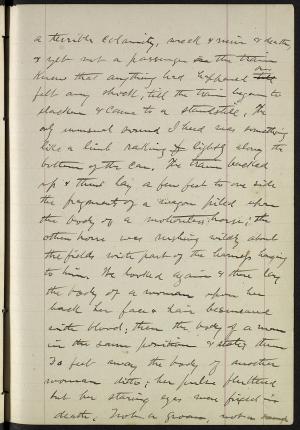 a terrible calamity, wreck & ruin & death,
& yet not a passenger on the train
knew that anything had happened or
felt any shock, till the train began to
slacken & come to a standstill. The
only unusual sound I heard was something
like a limb raking lightly along the
bottom of the car. The train backed
up & there lay a few feet to one side
the fragments of a wagon piled upon
the body of a motionless horse; the
other horse was rushing wildly about
the fields with part of the harness hanging
to him. We looked again & there lay
the body of a woman upon her
back her face & hair besmeared
with blood; then the body of a man
in the same position & state; then
30 feet away the body of another
woman ditto; her pulse fluttered
but her staring eyes were fixed in
death. Not a groan, not a